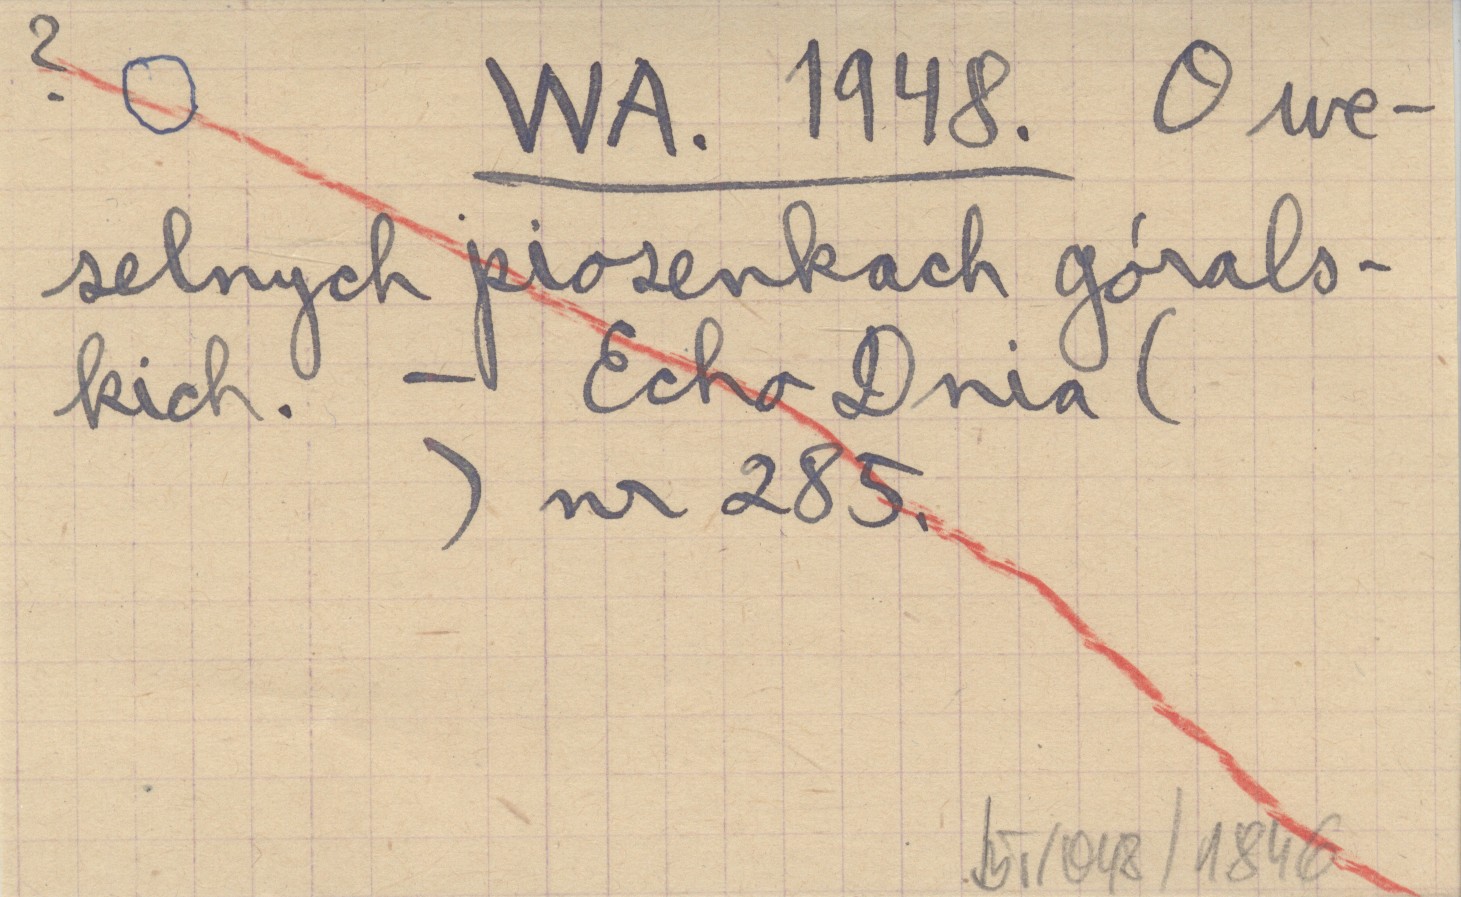 ?
WA. 1948. O we-
selnych piosenkach górals-
kich. - Echo Dnia (
) nr 285.
/1846